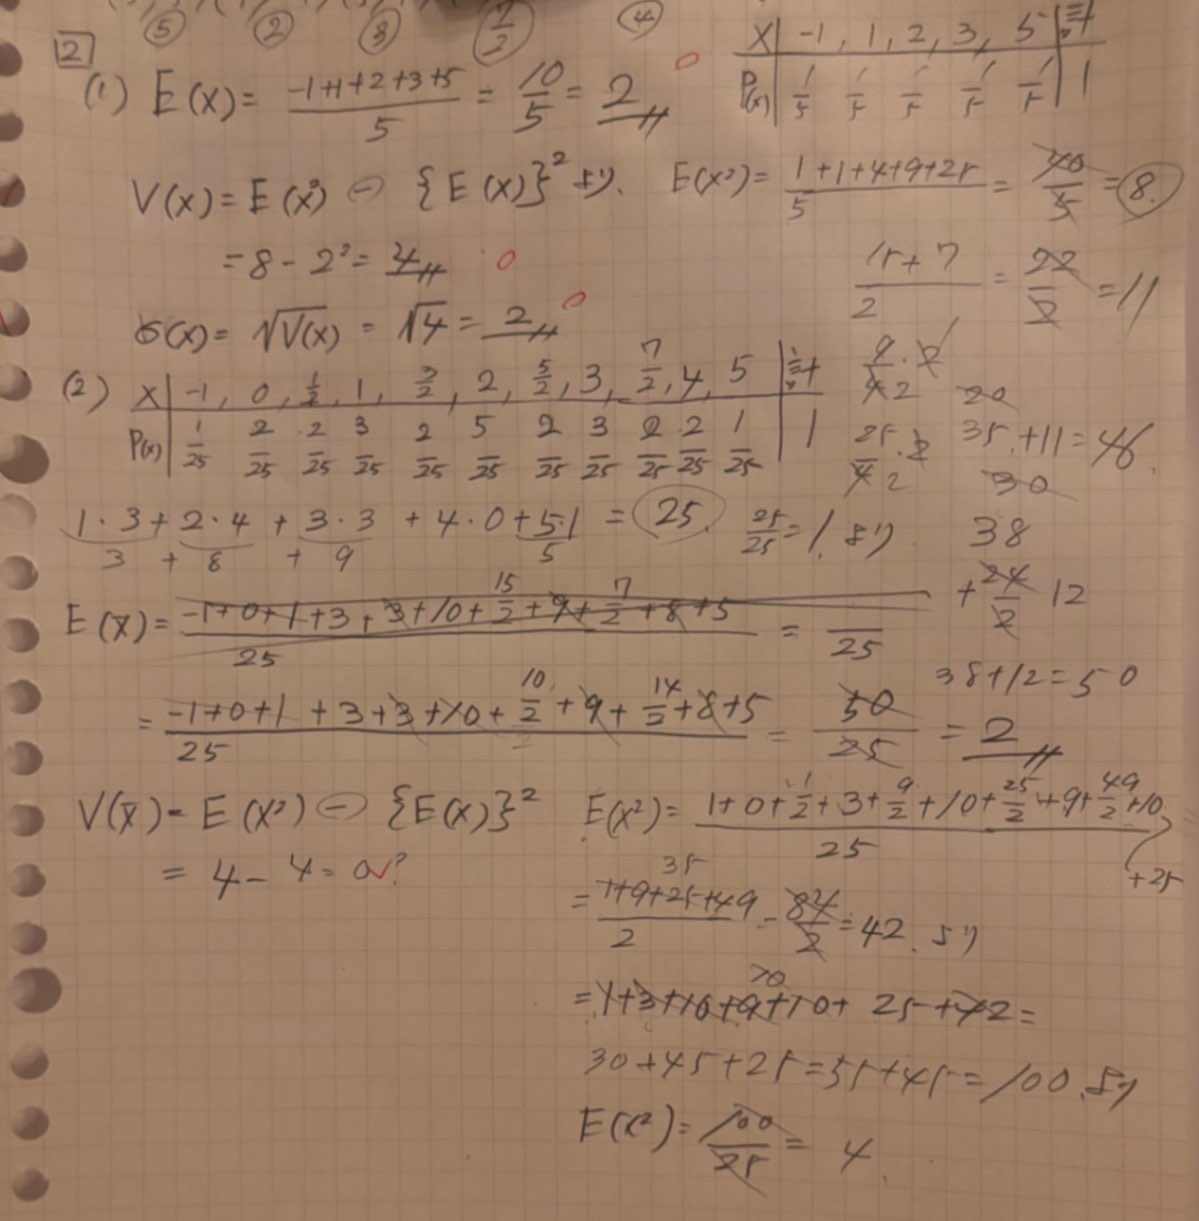 ⑤ ② ③ 7/2 ④
2
(1) E(X) = (-1+1+2+3+5)/5 = 10/5 = 2
X | -1, 1, 2, 3, 5 | 計
P(X) | 1/5 1/5 1/5 1/5 1/5 | 1
V(X) = E(X²) - {E(X)}² より. E(X²) = (1+1+4+9+25)/5 = 40/5 = 8.
= 8 - 2² = 4
(15+7)/2 = 22/2 = 11
σ(X) = √V(X) = √4 = 2
(2) X | -1, 0, 1/2, 1, 3/2, 2, 5/2, 3, 7/2, 4, 5 | 計
P(X) | 1/25 2/25 2/25 3/25 2/25 5/25 2/25 3/25 2/25 2/25 1/25 | 1
9/4 · 2 2
20
25/4 · 2 2
35 + 11 = 46.
30
1·3 + 2·4 + 3·3 + 4·0 + 5·1 = 25. 25/25 = 1. より
3 + 8 + 9 5
38
+ 24/2 12
E(X) = (-1+0+1+3+3+10+15/2+9+7/2+8+5)/25 = /25
38+12=50
= (-1+0+1+3+3+10+10/2+9+14/2+8+5)/25 = 50/25 = 2
V(X̄) = E(X²) - {E(X)}² E(X²) = (1+0+1/2+3+9/2+10+25/2+9+49/2+10)/25
+25
= 4 - 4 = 0?
35
= (1+9+25+49)/2 = 84/2 = 42. より
20
= 1+3+10+9+10+ 25+42 =
30+45+25=55+45=100. より
E(X²) = 100/25 = 4.